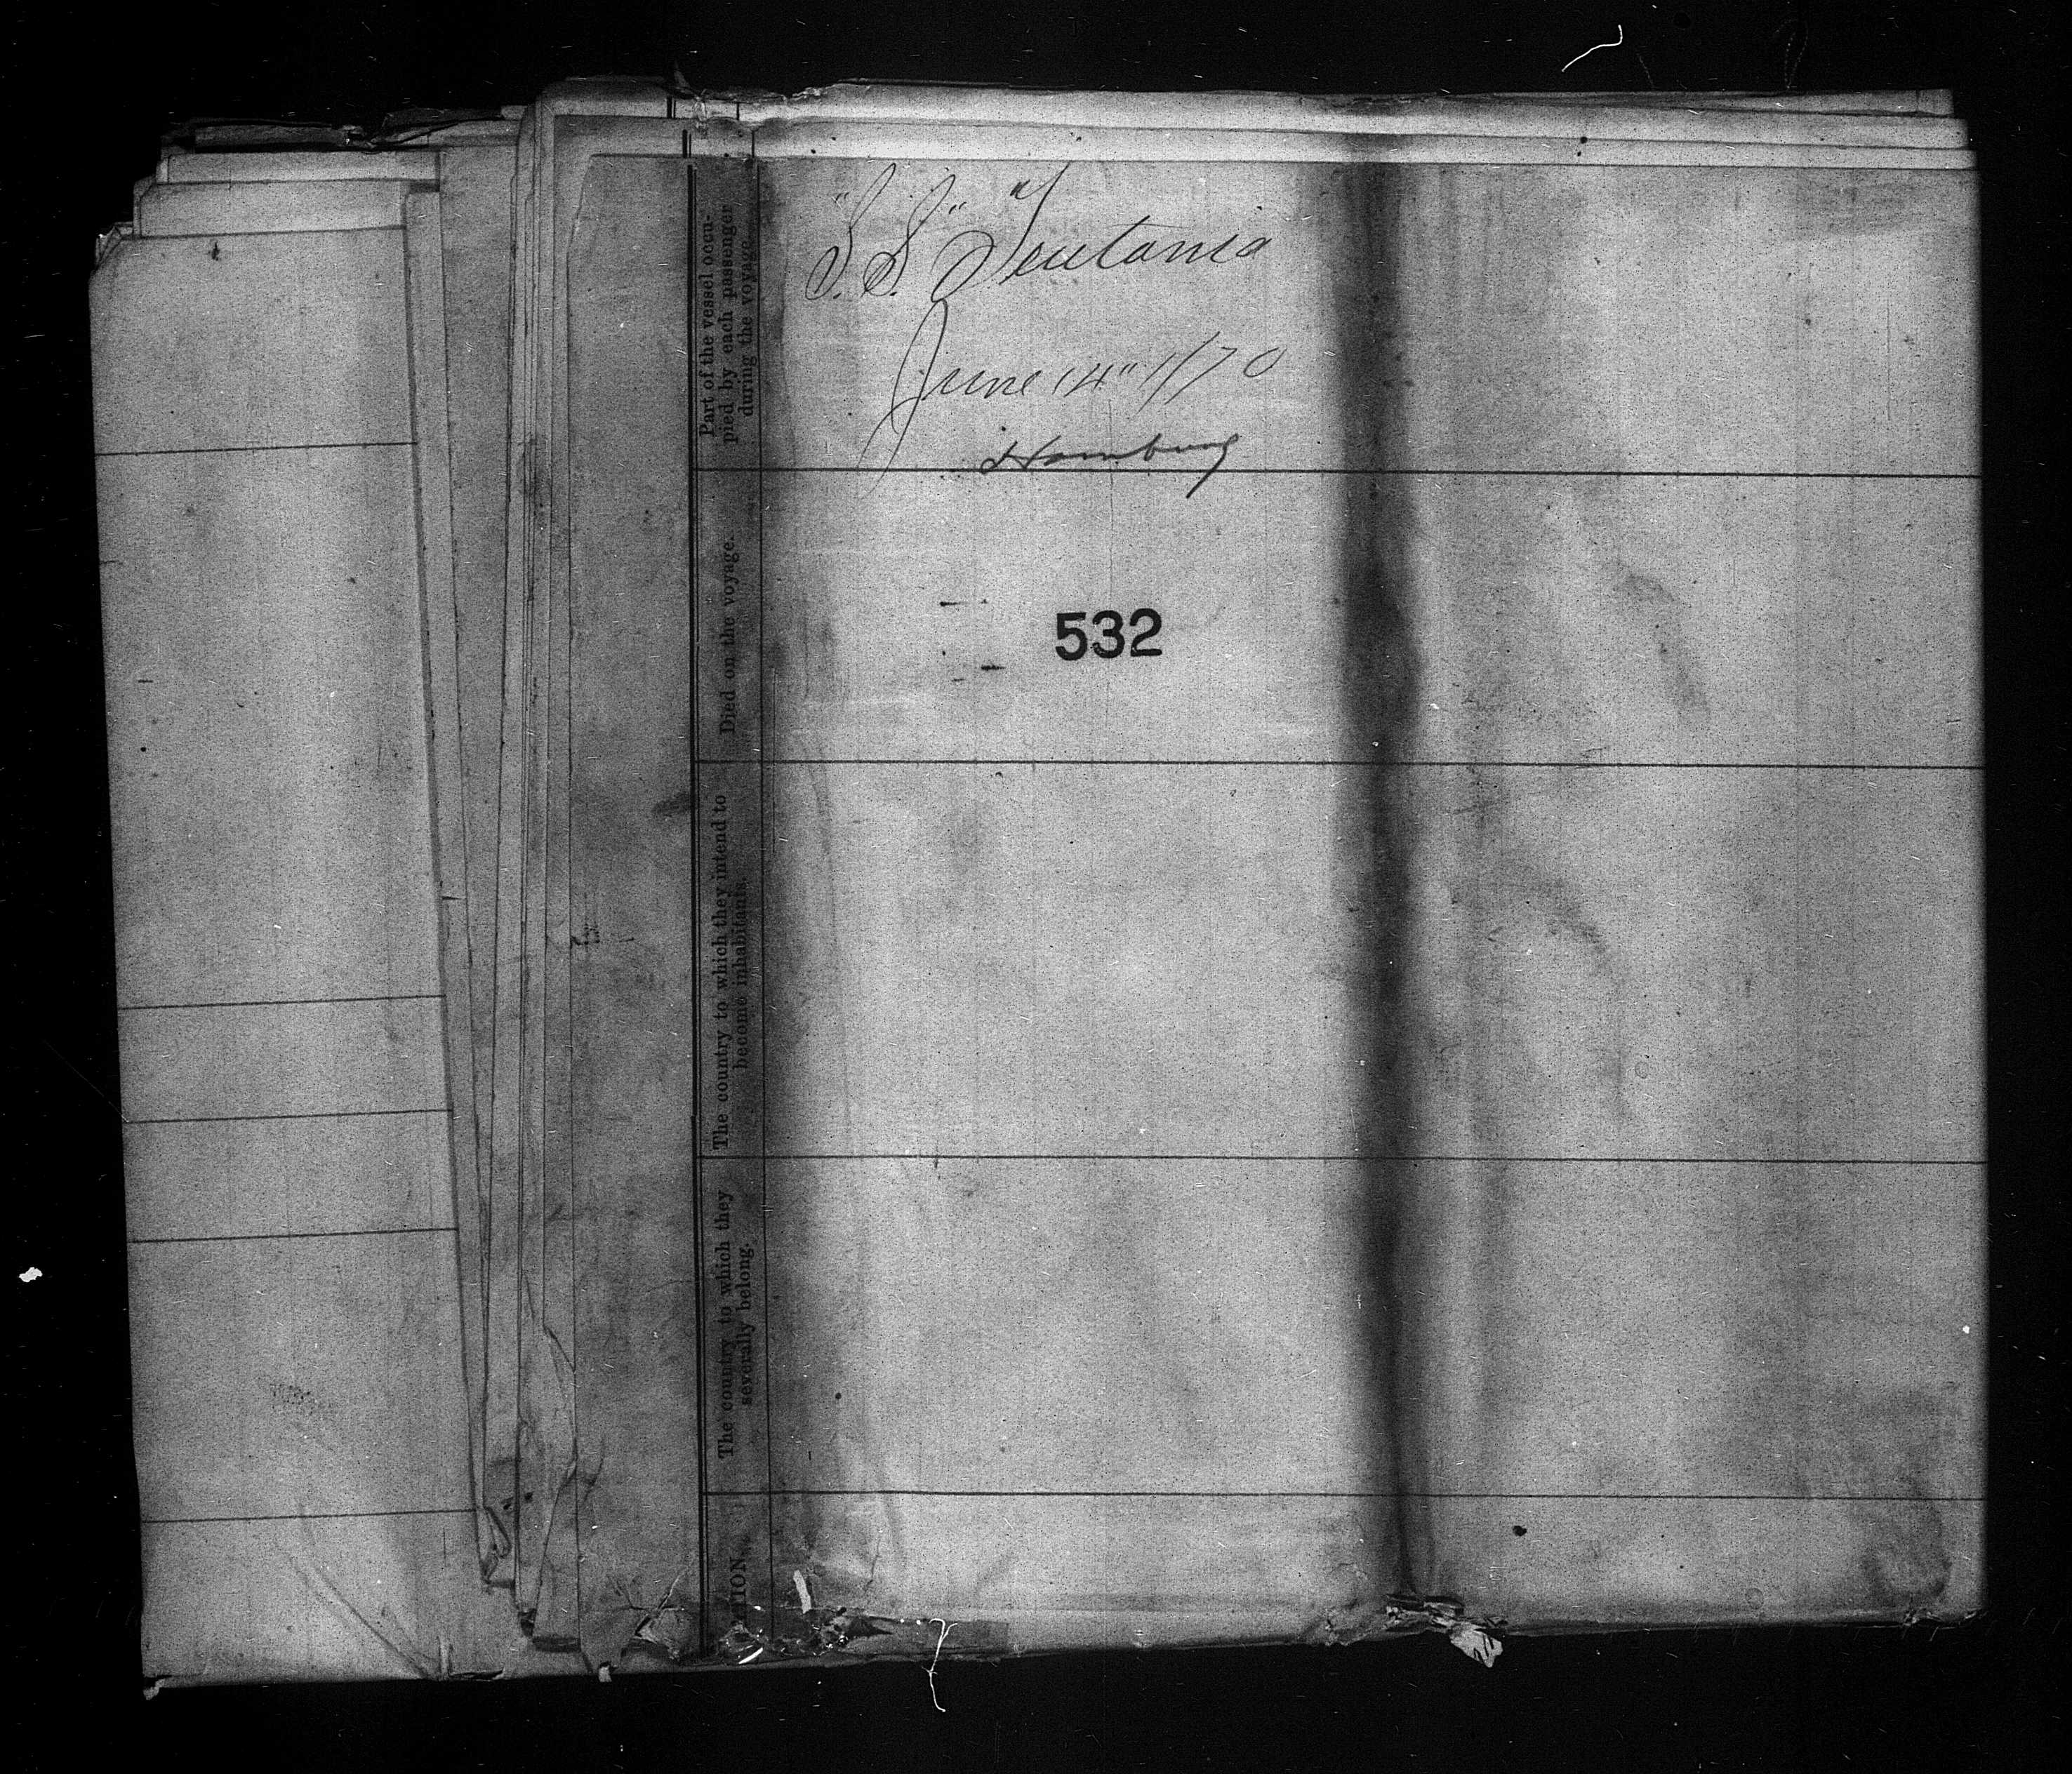 "S.S." "Teutania
June 14" 1/70
Hamburg
532
Part of the vessel occu-
pied by each passenger
during the voyage.
Died on the voyage.
The country to which they intend to
become inhabitants.
The country to which they
severally belong.
TION.